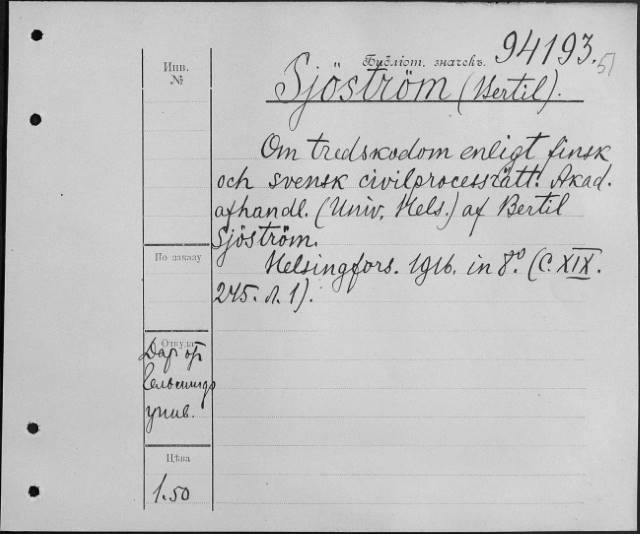 Инв. №
Библіот. значекъ. 94193.
51
Sjöström (Bertil).
Om tredskodom enligt finsk
och svensk civilprocessrätt. Akad.
afhandl. (Univ. Hels.) af Bertil
Sjöström.
Helsingfors. 1916. in 8º. (C. XIX.
245. л. 1).
По заказу
Откуда
Дар от
Гельсингф
унив.
Цѣна
1.50